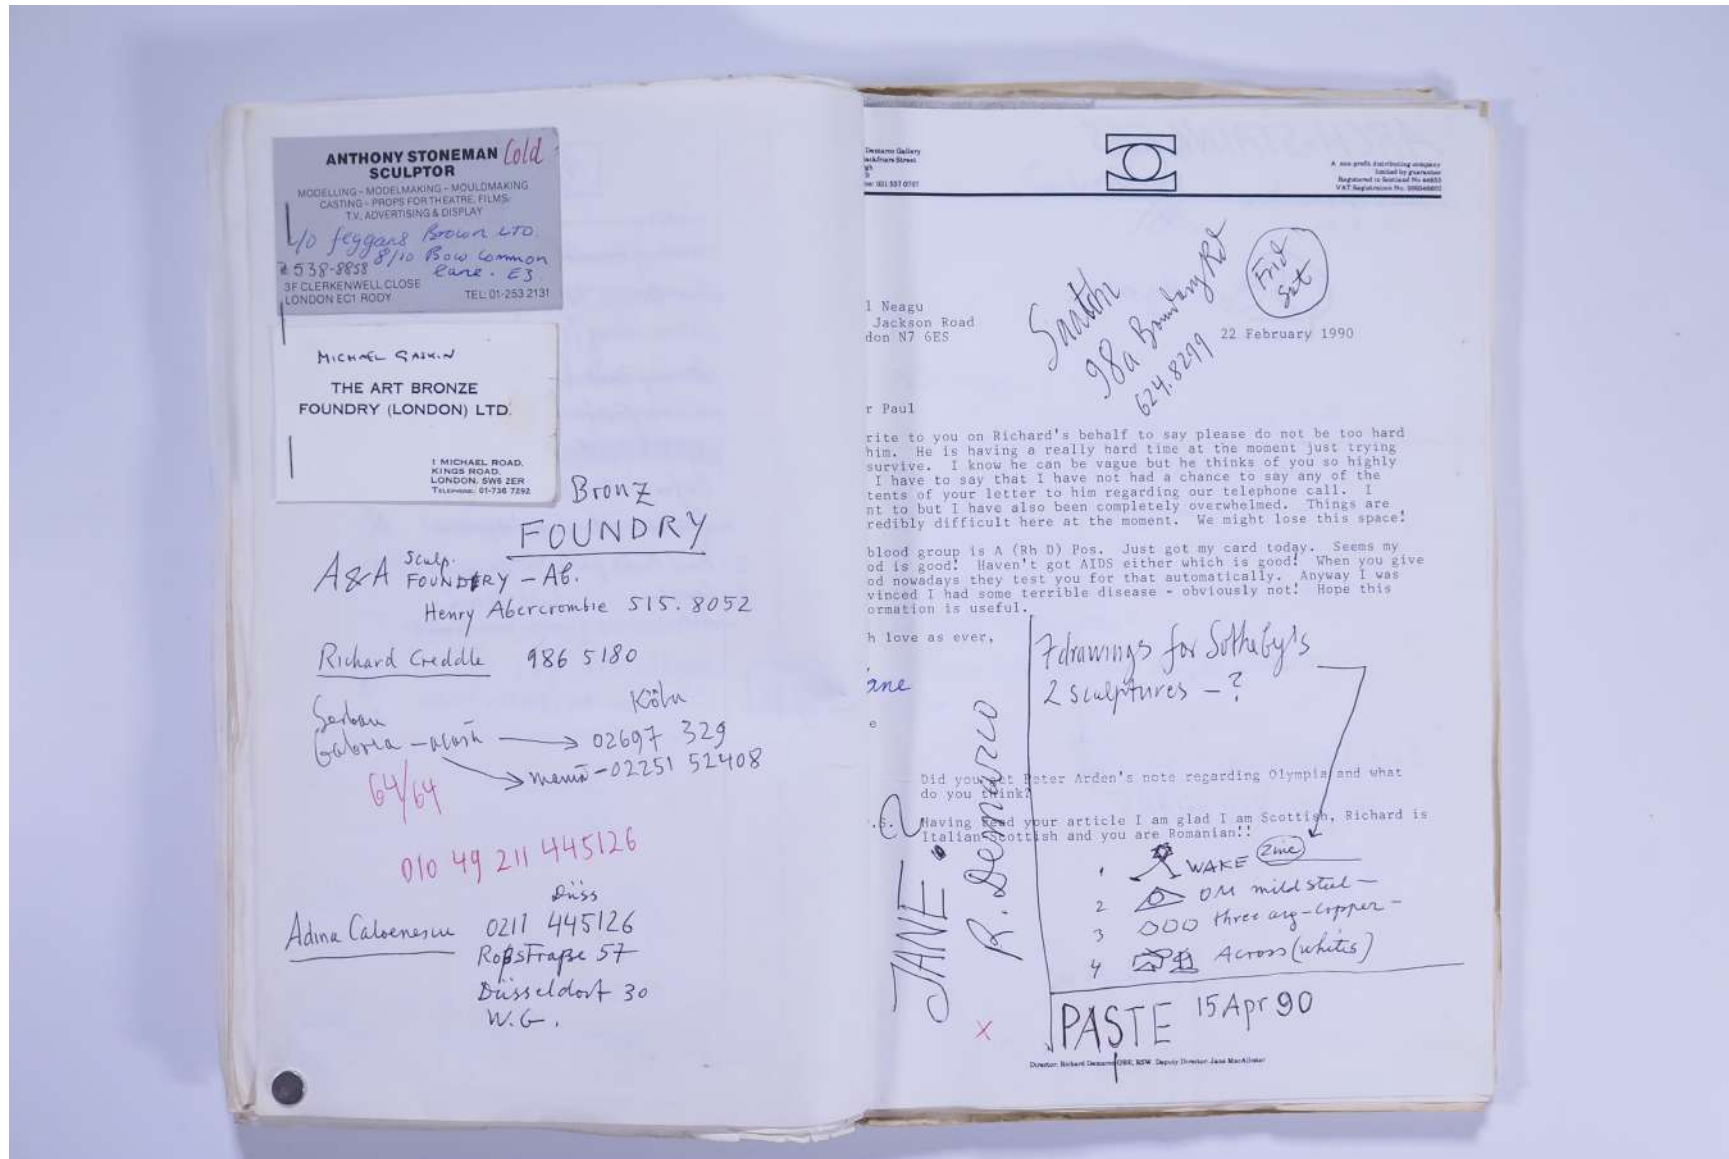 ANTHONY STONEMAN Cold
SCULPTOR
MODELLING - MODELMAKING - MOULDMAKING
CASTING - PROPS FOR THEATRE, FILMS,
T.V., ADVERTISING & DISPLAY
c/o feggans Brown LTD.
8/10 Bow Common
538-8858 Lane. E3
3F CLERKENWELL CLOSE
LONDON EC1 RODY TEL: 01-253 2131
MICHAEL GASKIN
THE ART BRONZE
FOUNDRY (LONDON) LTD.
1 MICHAEL ROAD,
KINGS ROAD,
LONDON, SW6 2ER
TELEPHONE: 01-736 7292
Bronz
FOUNDRY
A&A Sculp. FOUNDERY - Ab.
Henry Abercrombie 515.8052
Richard Creddle 986 5180
Serban Köln
Gabriela - acasă → 02697 329
mamă - 02251 52408
64/64
010 49 211 445126
Düss
Adina Caloenescu 0211 445126
Roßstraße 57
Düsseldorf 30
W.G.
Demarco Gallery
ackfriars Street
gh
031 557 0707
A non profit distributing company
limited by guarantee
Registered in Scotland No
VAT Registration No.
Saatchi
98a Boundary Rd
624.8299
Frid
Sat
l Neagu
Jackson Road
don N7 6ES
22 February 1990
r Paul
rite to you on Richard's behalf to say please do not be too hard
him. He is having a really hard time at the moment just trying
survive. I know he can be vague but he thinks of you so highly
I have to say that I have not had a chance to say any of the
tents of your letter to him regarding our telephone call. I
nt to but I have also been completely overwhelmed. Things are
redibly difficult here at the moment. We might lose this space!
blood group is A (Rh D) Pos. Just got my card today. Seems my
od is good! Haven't got AIDS either which is good! When you give
od nowadays they test you for that automatically. Anyway I was
vinced I had some terrible disease - obviously not! Hope this
ormation is useful.
h love as ever,
ane
e
7 drawings for Sotheby's
2 sculptures - ?
Did you get Peter Arden's note regarding Olympia and what
do you think?
.S. Having read your article I am glad I am Scottish, Richard is
Italian Scottish and you are Romanian!!
JANE
R. Demarco
1 WAKE Zinc
2 OM mild steel -
3 three arg-copper -
4 Across (whites)
PASTE 15 Apr 90
x
Director: Richard Demarco OBE, RSW. Deputy Director: Jane MacAllister